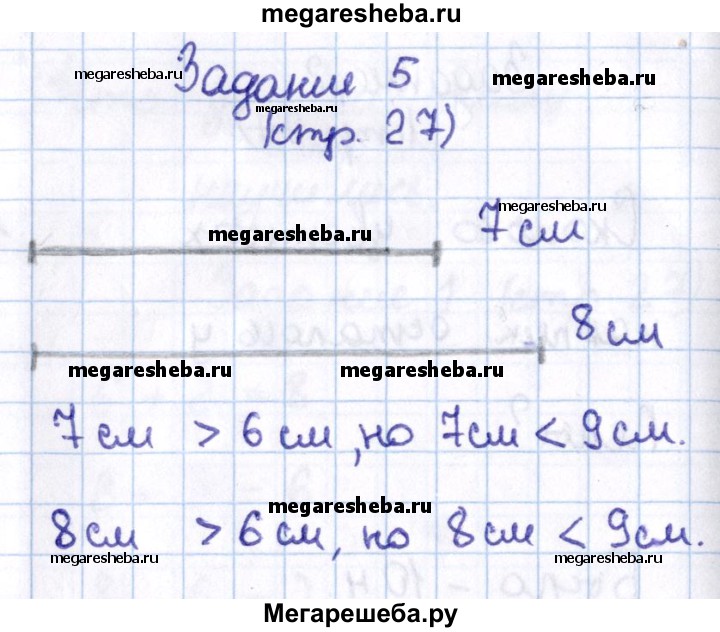 megaresheba.ru
megaresheba.ru Задание 5 megaresheba.ru
megaresheba.ru
(стр. 27)
megaresheba.ru
megaresheba.ru 7 см
8 см
megaresheba.ru megaresheba.ru
7 см > 6 см, но 7 см < 9 см.
megaresheba.ru
8 см > 6 см, но 8 см < 9 см.
megaresheba.ru megaresheba.ru
Мегарешеба.ру